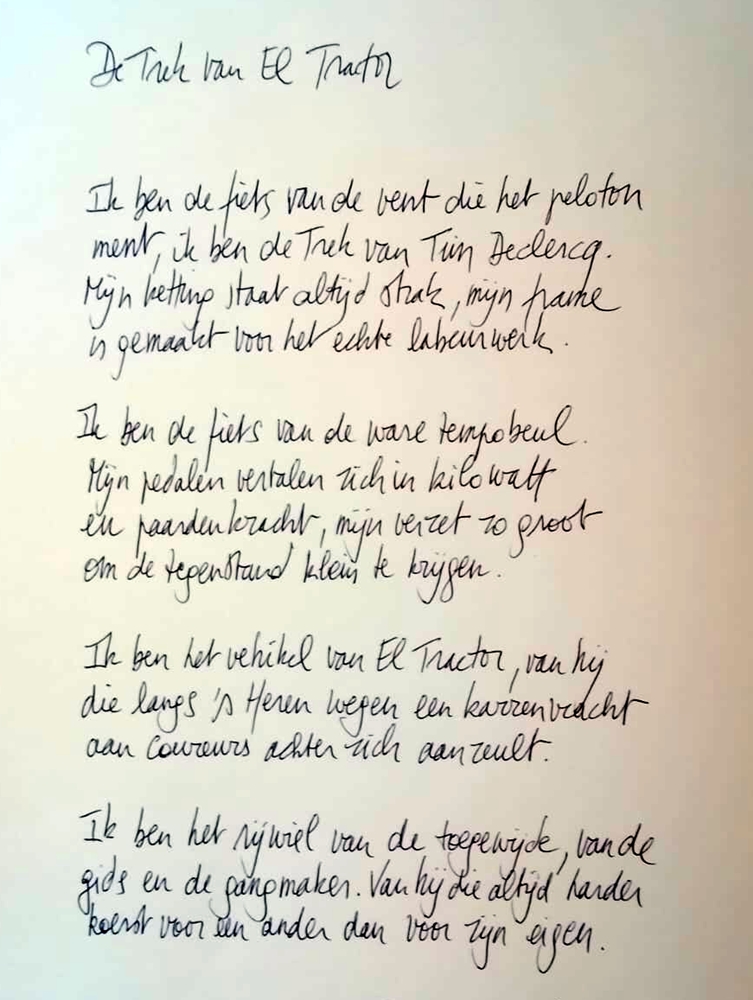 De Trek van El Tractor
Ik ben de fiets van de vent die het peloton
ment, ik ben de Trek van Tim Declercq.
Mijn ketting staat altijd strak, mijn frame
is gemaakt voor het echte labeurwerk.
Ik ben de fiets van de ware tempobeul.
Mijn pedalen vertalen zich in kilowatt
en paardenkracht, mijn verzet zo groot
om de tegenstand klein te krijgen.
Ik ben het vehikel van El Tractor, van hij
die langs 's Heren wegen een karrenvracht
aan coureurs achter zich aan zeult.
Ik ben het rijwiel van de toegewijde, van de
gids en de gangmaker. Van hij die altijd harder
koerst voor een ander dan voor zijn eigen.